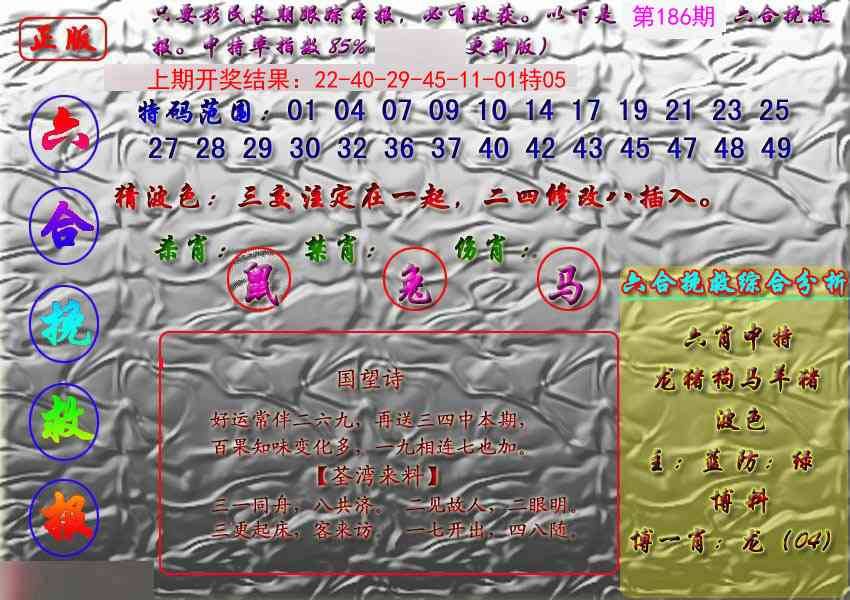 正版
只要彩民长期跟踪本报，必有收获。以下是 第186期 六合挽救
报。中特率指数85% 更新版）
上期开奖结果：22-40-29-45-11-01特05
特码范围：01 04 07 09 10 14 17 19 21 23 25
27 28 29 30 32 36 37 40 42 43 45 47 48 49
猜波色：三变注定在一起，二四修改八插入。
杀肖： 禁肖： 伤肖：
鼠 兔 马
六
合
挽
救
报
国望诗
好运常伴二六九，再送三四中本期，
百果知味变化多，一九相连七也加。
【荃湾来料】
三一同舟，八共济。 二见故人，二眼明。
三更起床，客来访。 一七开出，四八随。
六合挽救综合分析
六肖中特
龙猪狗马羊猪
波色
主：蓝防：绿
博料
博一肖：龙（04）